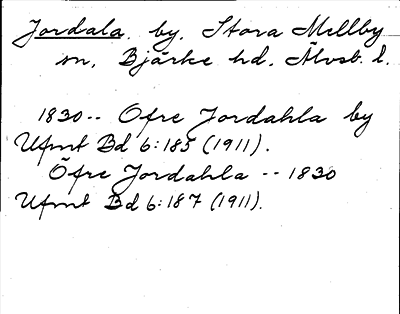 Jordala, by, Stora Mellby
sn, Bjärke hd, Älvsb. l.
1830-- Öfre Jordahla by
Ufmt Bd 6:185 (1911).
Öfre Jordahla -- 1830
Ufmt Bd 6:187 (1911).